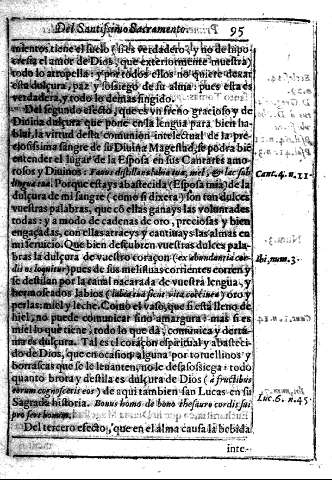 Del Santissimo Sacramento. 95
mientos tiene el suelo (si es verdadero, y no de hipo-
cresia el amor de Dios, que exteriormente muestra)
todo lo atropella: y por todos ellos no quiere dexar
esta dulçura, paz y sossiego de su alma: pues esta es
verdadera, y todo lo demas fingido.
Del segundo efecto, que es vn señO gracioso y de
Diuina dulçura que pone en la lengua para bien ha-
blar, la virtud desta comunion intelectual de la pre-
ciosissima sangre de su Diuina Magestad, se podra biẽ
entender el lugar de la Esposa en sus Cantares amo-
rosos y Diuinos: Fauus distillans labia tua, mel, & lac sub
lingua tua. Porque estays abastecida (Esposa mia) de la
dulçura de mi sangre (como si dixera) son tan dulces
vuestras palabras, que cõ ellas ganays las voluntades
todas: y a modo de cadenas de oro, preciosas y bien
engaçadas, con ellas atraeys y cautiuays las almas en
mi seruicio. Que bien descubren vuestras dulces pala-
bras la dulçura de vuestro coraçon (ex abundantia cor-
dis os loquitur) pues de sus melifluas corrientes corren y
se destilan por la canal nacarada de vuestra lengua, y
hermoseados labios (labia tua sicut vitta coccinea) oro y
perlas: miel y leche. Como el vaso, que si està lleno de
hiel, no puede comunicar sino amargura: mas si es
miel lo que tiene, todo lo que dà, comunica y derra-
ma es dulçura. Tal es el coraçon espiritual y abasteci-
do de Dios, que en ocasion alguna por toruellinos y
borrascas que se le leuanten, no le desasossiega: todo
quanto brota y destila es dulçura de Dios (à fructibus
eorum cognoscetis eos) de aqui tambien san Lucas en su
Sagrada historia. Bonus homo de bono thesauro cordis sui
profert bonum.
Del tercero efecto, que en el alma causa la bebida
inte-
Cant. 4. n. 11.
Ibi, num. 3.
Luc. 6. n. 45.